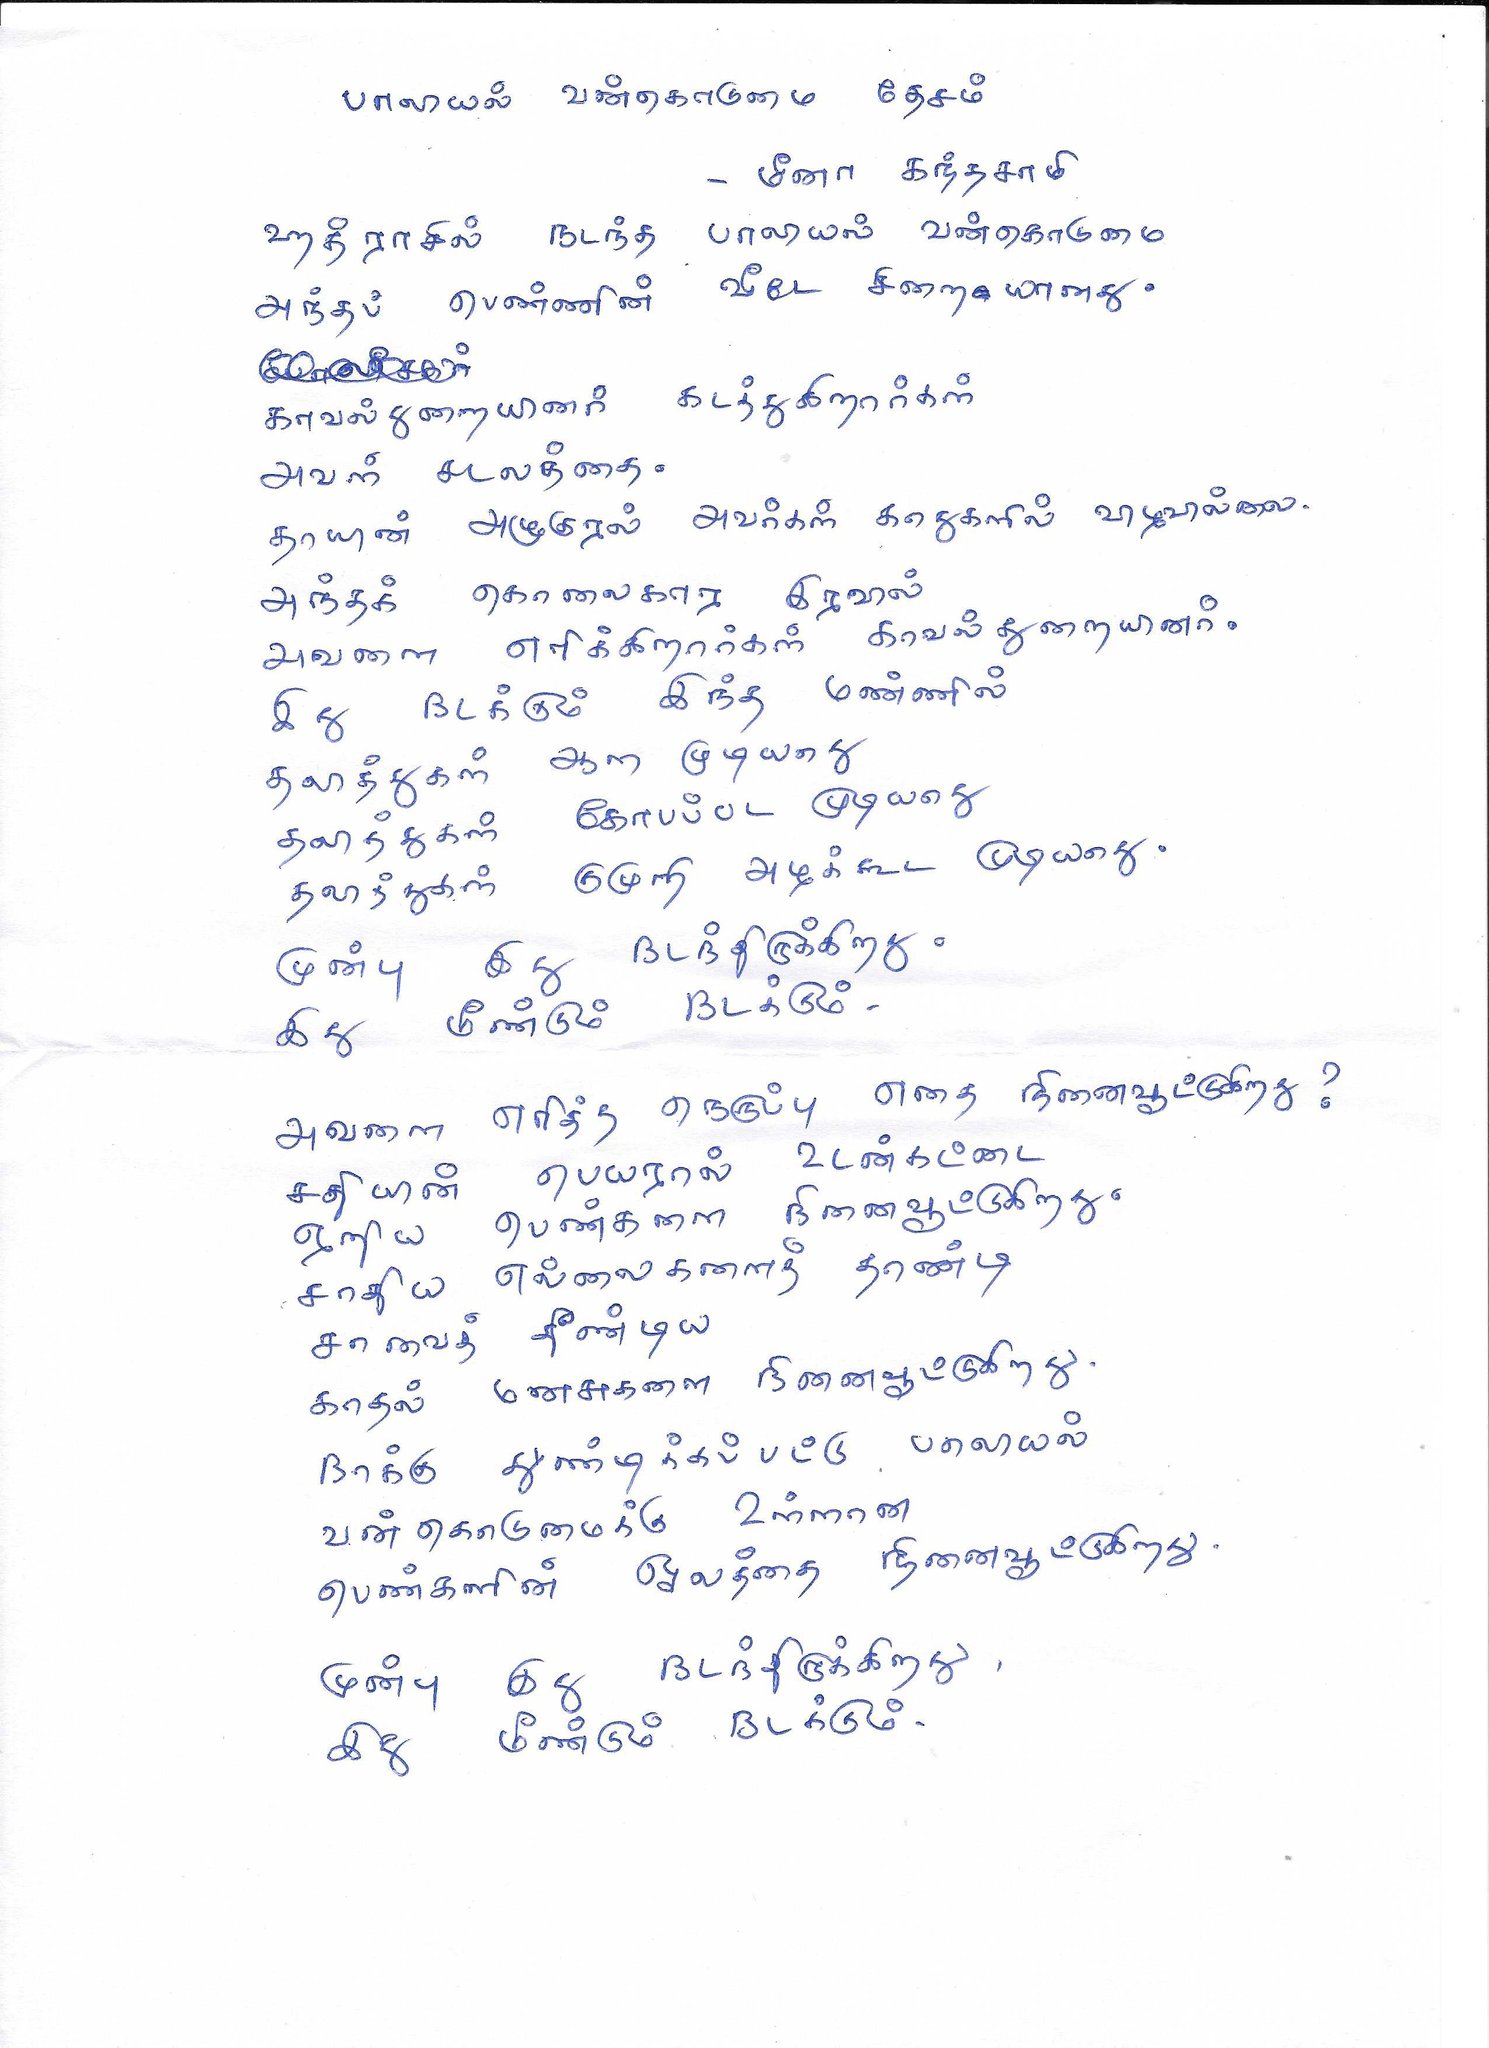 பாலியல் வன்கொடுமை தேசம்
- மீனா கந்தசாமி
ஹத்ராசில் நடந்த பாலியல் வன்கொடுமை
அந்தப் பெண்ணின் வீடே சிறையானது.
காவல்துறையினர் கடத்துகிறார்கள்
அவள் சடலத்தை.
தாயின் அழுகுரல் அவர்கள் காதுகளில் விழவில்லை.
அந்தக் கொலைகார இரவில்
அவளை எரிக்கிறார்கள் காவல்துறையினர்.
இது நடக்கும் இந்த மண்ணில்
தலித்துகள் ஆள முடியாது
தலித்துகள் கோபப்பட முடியாது
தலித்துகள் குமுறி அழக்கூட முடியாது.
முன்பு இது நடந்திருக்கிறது.
இது மீண்டும் நடக்கும்.
அவளை எரித்த நெருப்பு எதை நினைவூட்டுகிறது?
சதியின் பெயரால் உடன்கட்டை
ஏறிய பெண்களை நினைவூட்டுகிறது.
சாதிய எல்லைகளைத் தாண்டி
சாவைத் தீண்டிய
காதல் மனசுகளை நினைவூட்டுகிறது.
நாக்கு துண்டிக்கப்பட்டு பாலியல்
வன்கொடுமைக்கு உள்ளான
பெண்களின் ஓலத்தை நினைவூட்டுகிறது.
முன்பு இது நடந்திருக்கிறது,
இது மீண்டும் நடக்கும்.